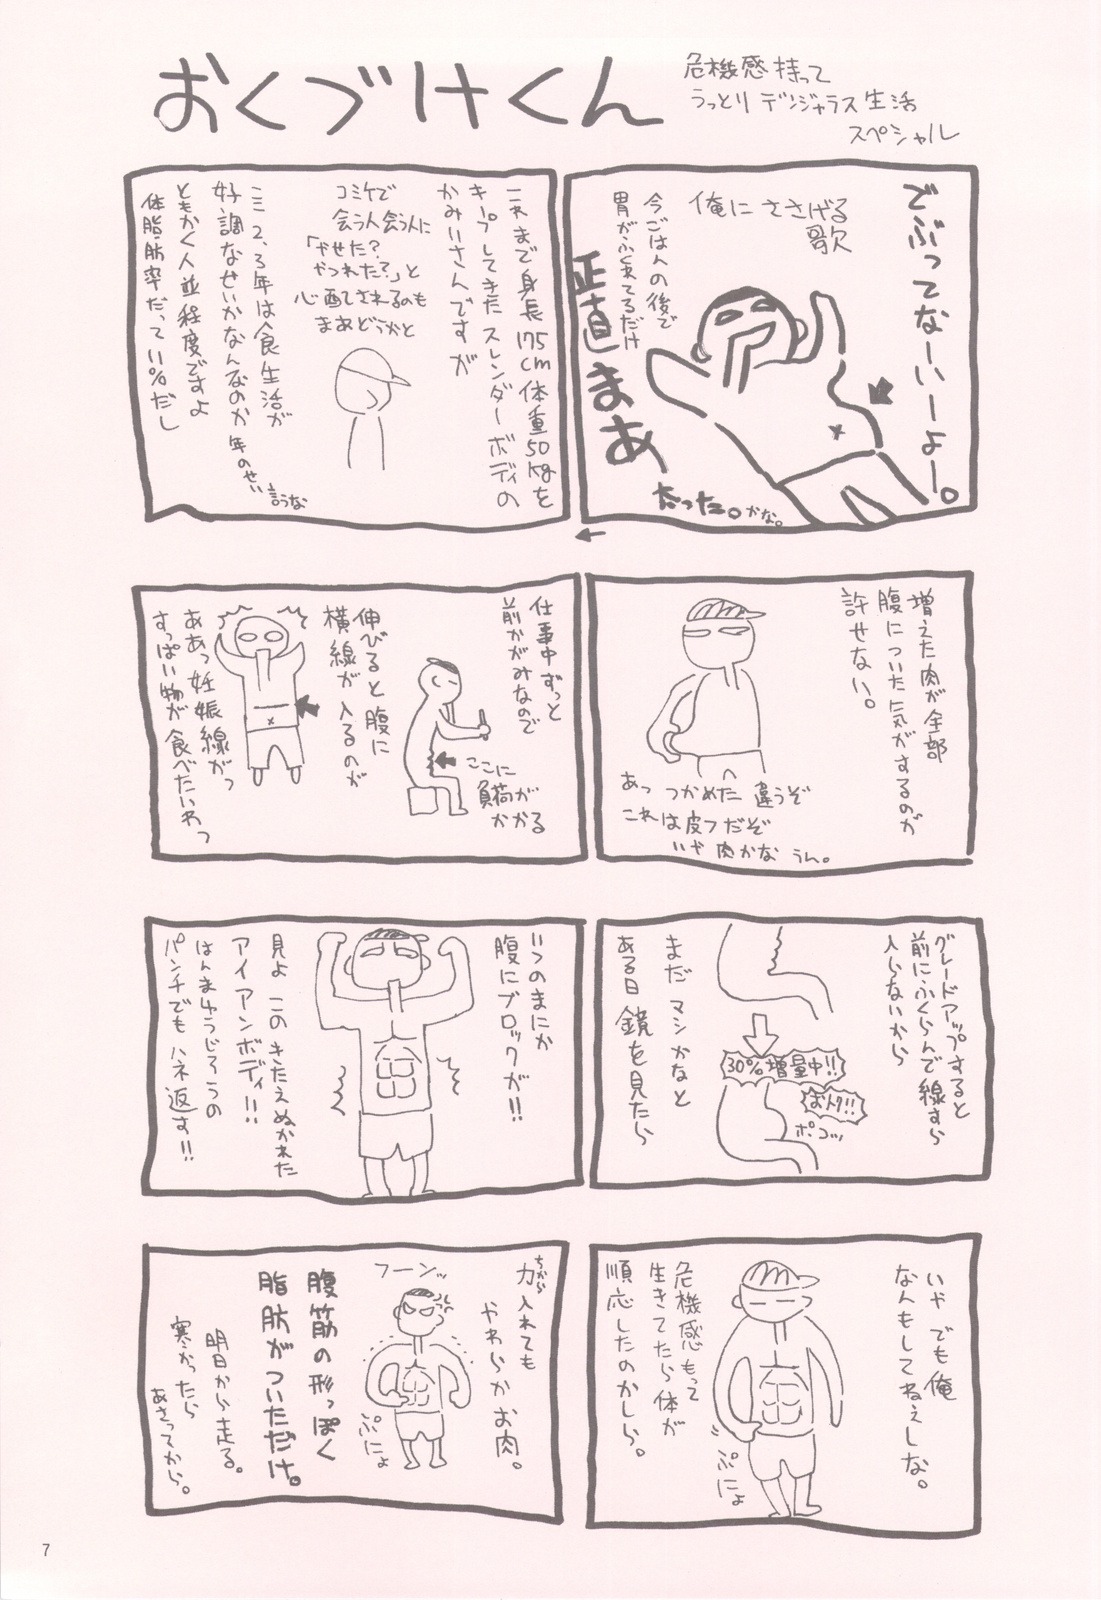 おくづけくん
危機感持って
うっとりデンジャラス生活
スペシャル
でぶってなーいーよー。
俺にささげる
歌
今ごはんの後で
胃がふくれてるだけ
正直まあ
太った。かな。
これまで身長175cm体重50kgを
キープしてきたスレンダーボディの
かみいさんですが
コミケで
会う人会う人に
「やせた?
やつれた?」と
心配されるのも
まあどうかと
ここ2、3年は食生活が
好調なせいかなんなのか年のせい
言うな
ともかく人並程度ですよ
体脂肪率だって11%だし
増えた肉が全部
腹についた気がするのが
許せない。
あっ つかめた 違うぞ
これは皮フだぞ
いや 肉かな うん。
仕事中ずっと
前かがみなので
ここに
負荷が
かかる
伸びると腹に
横線が入るのが
ああっ妊娠線がっ
すっぱい物が食べたいわっ
グレードアップすると
前にふくらんで線すら
入らないから
30%増量中!!
おトク!!
ポコッ
まだマシかなと
ある日鏡を見たら
いつのまにか
腹にブロックが!!
見よ このきたえぬかれた
アイアンボディ!!
はんまゆうじろうの
パンチでもハネ返す!!
いや でも俺
なんもしてねぇしな。
ぷにょ
危機感もって
生きてたら体が
順応したのかしら。
力入れても
ちから
やわらかお肉。
フーンッ
ぷにょ
腹筋の形っぽく
脂肪がついただけ。
明日から走る。
寒かったら
あさってから。
7